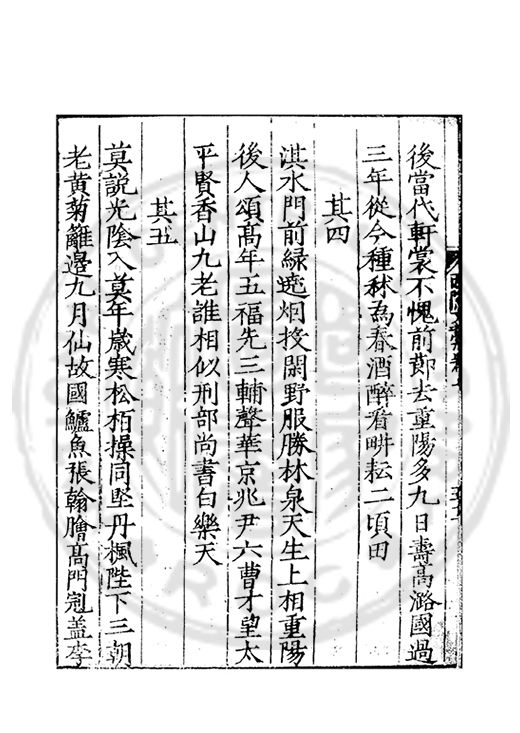 後當代軒裳不愧前節去重陽多九日壽高潞國過
三年從今種秫為春酒醉看畊耘二頃田
其四
淇水門前綠遶烟投閒野服勝林泉天生上相重陽
後人頌髙年五福先三輔聲華京兆尹六曹才望太
平賢香山九老誰相似刑部尚書白樂天
其五
莫說光陰入莫年歲寒松柏操同堅丹楓陛下三朝
老黄菊籬邊九月仙故國鱸魚張翰膾高門冠盖李